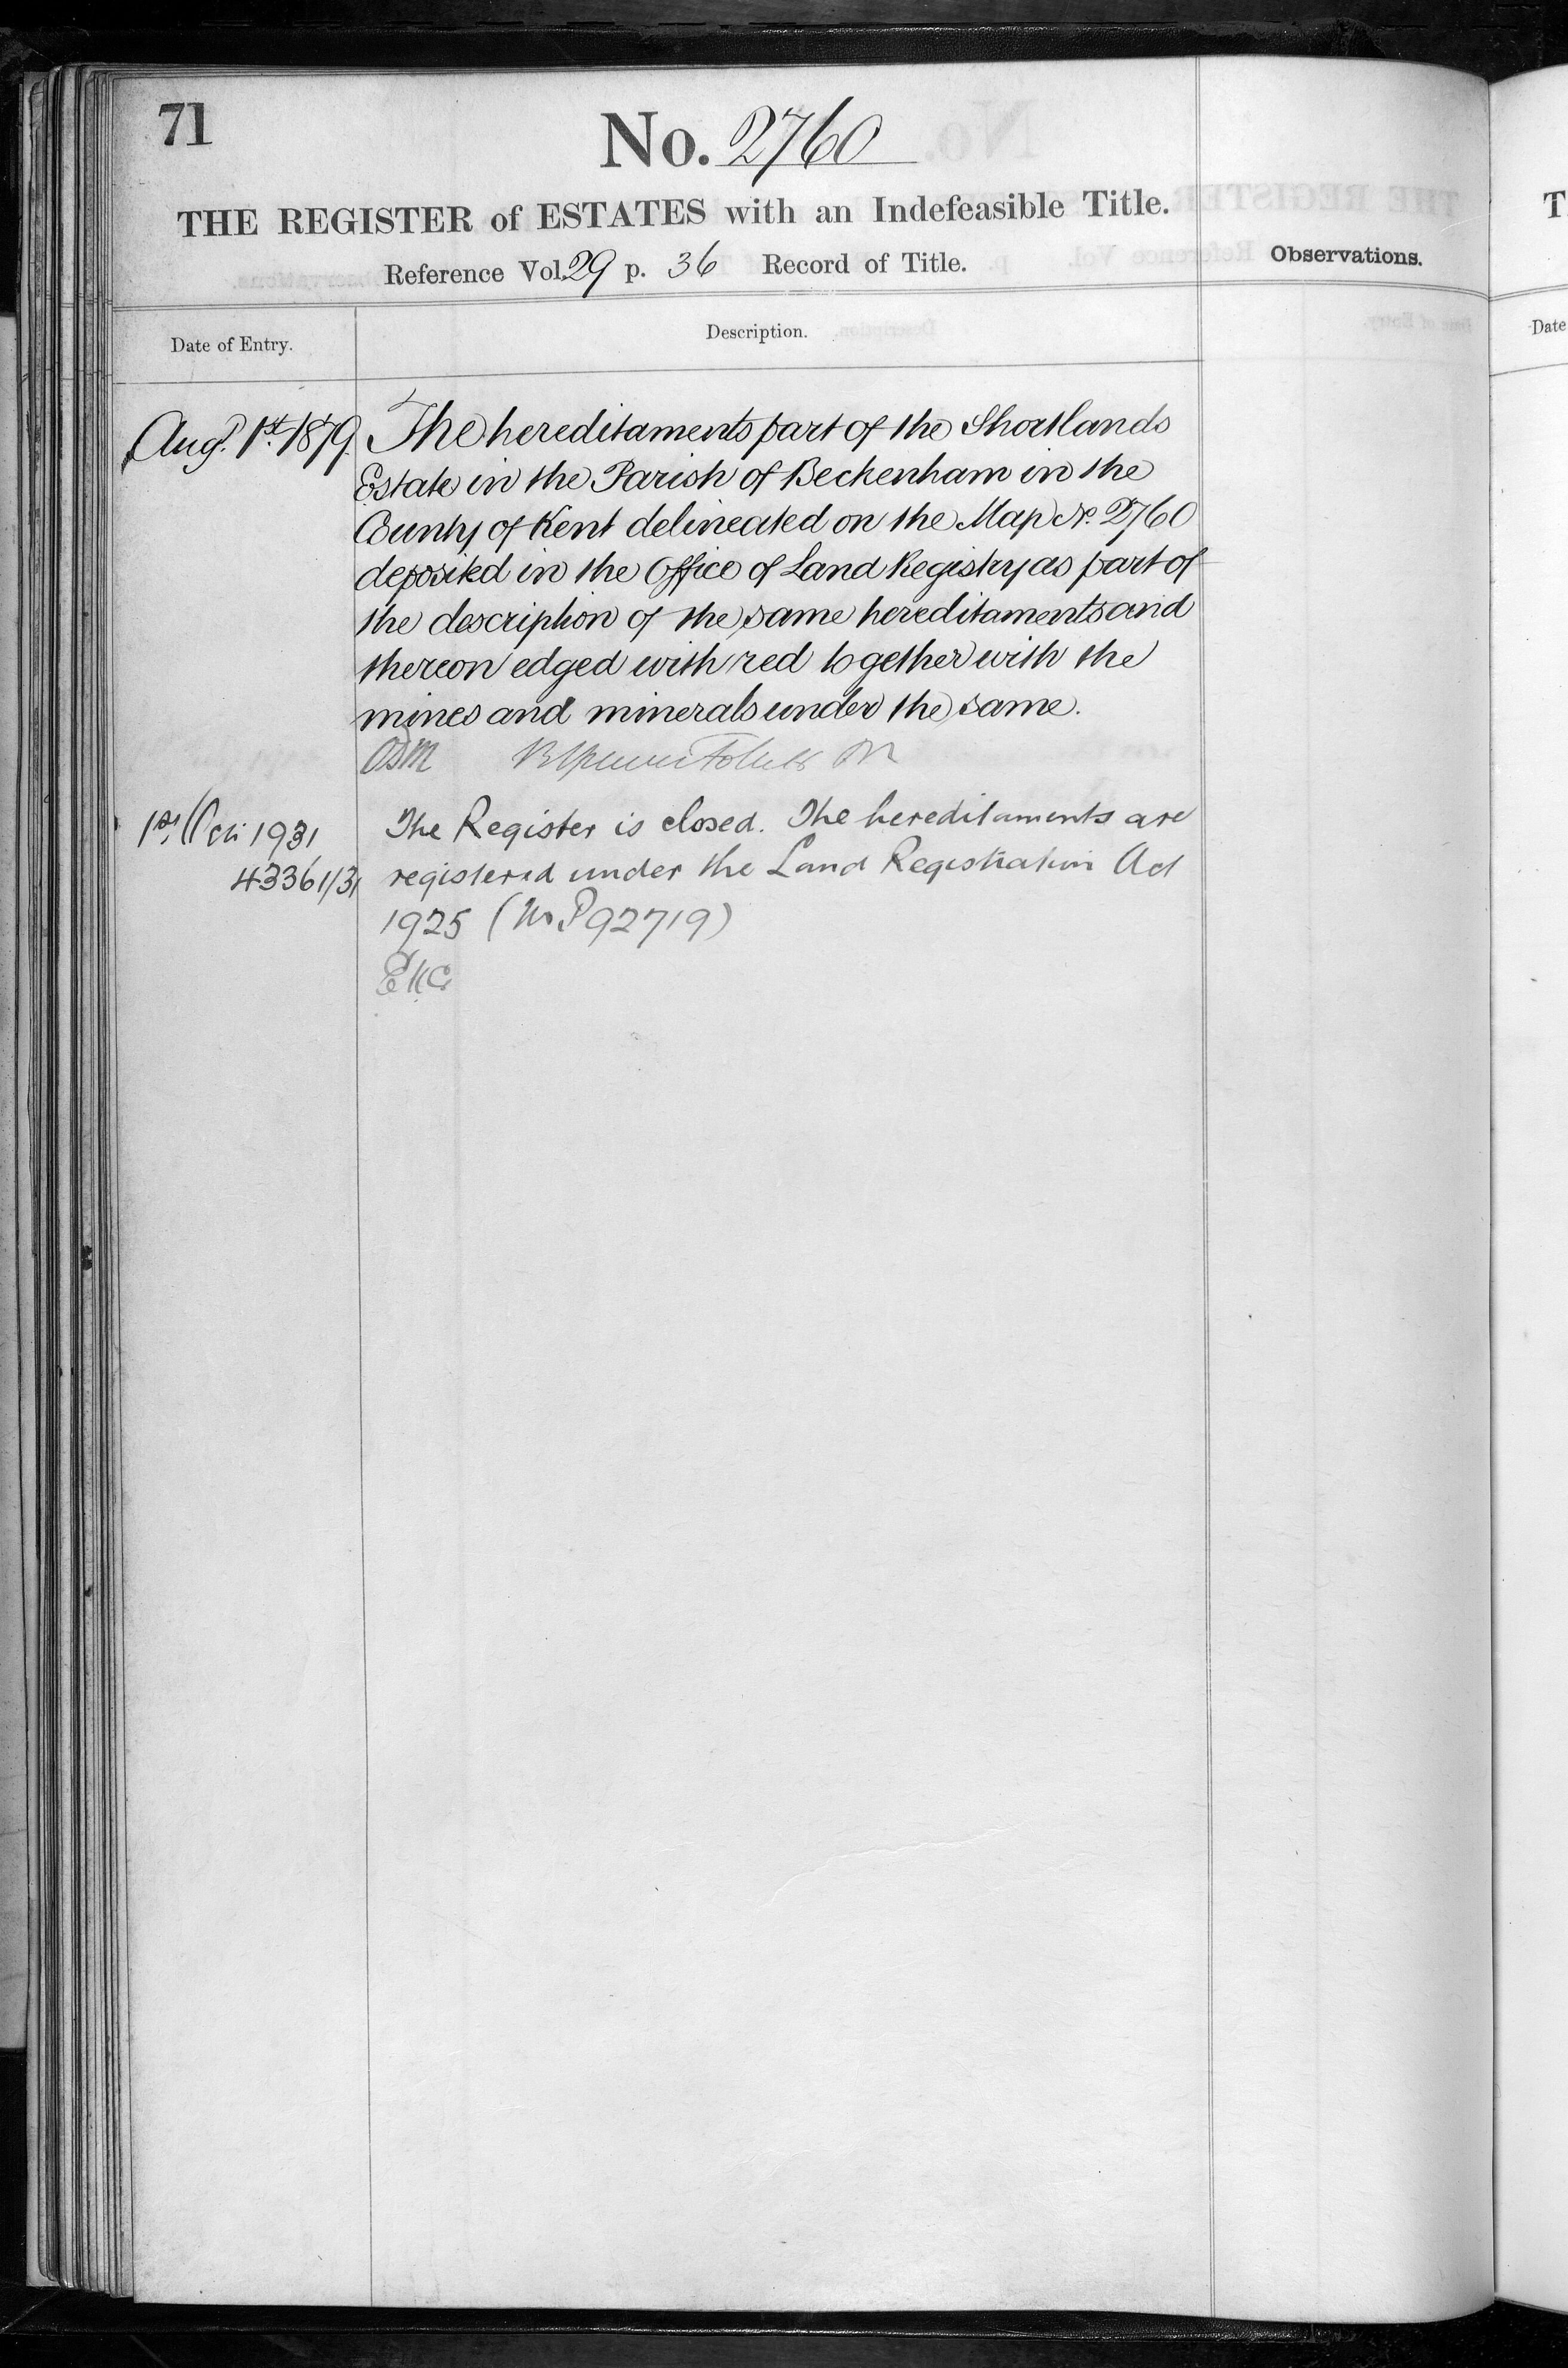 71
No. 2760
THE REGISTER of ESTATES with an Indefeasible Title.
Reference Vol. 29 p. 36 Record of Title.
Observations.
Date of Entry.
Description.
Augt. 1st. 1879.
The hereditaments part of the Shortlands
Estate in the Parish of Beckenham in the
County of Kent delineated on the Map No. 2760
deposited in the Office of Land Registry as part of
the description of the same hereditaments and
thereon edged with red together with the
mines and minerals under the same.
1st Oct 1931
43361/31
The Register is closed. The hereditaments are
registered under the Land Registration Act
1925 (No P92719)
T
Date